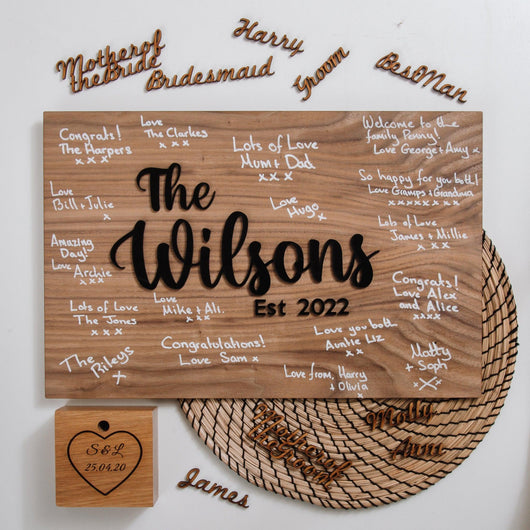 Mother of
the Bride
Bridesmaid
Harry
Groom
Best Man
Congrats!
The Harpers
x x x
Love
The Clarkes
x x x
Lots of Love
Mum + Dad
x x x
Welcome to the
family Penny!
Love George + Amy x
Love
Bill + Julie
x
The
Wilsons
Est 2022
Love
Hugo x
So happy for you both!
Love Gramps + Grandma
x x x x x x x x
Lots of Love
James + Millie
x x
Amazing
Day!
Love Archie
x x x
Lots of Love
The Jones
x x x
Love
Mike + Ali.
x x x
Congrats!
Love Alex
and Alice
x x x x
The Rileys
x
Congratulations!
Love Sam x
Love you both
Auntie Liz
x x
Love from, Harry
+ Olivia
x
Matty
+ Soph
x x x
S & L
25.04.20
Mother of
the Groom
Molly
Ann
James